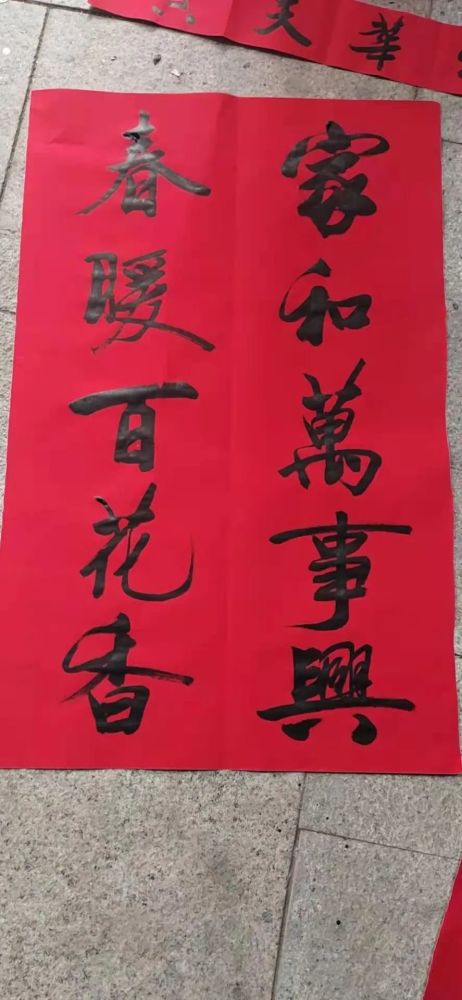 家和萬事興
春暖百花香
華天